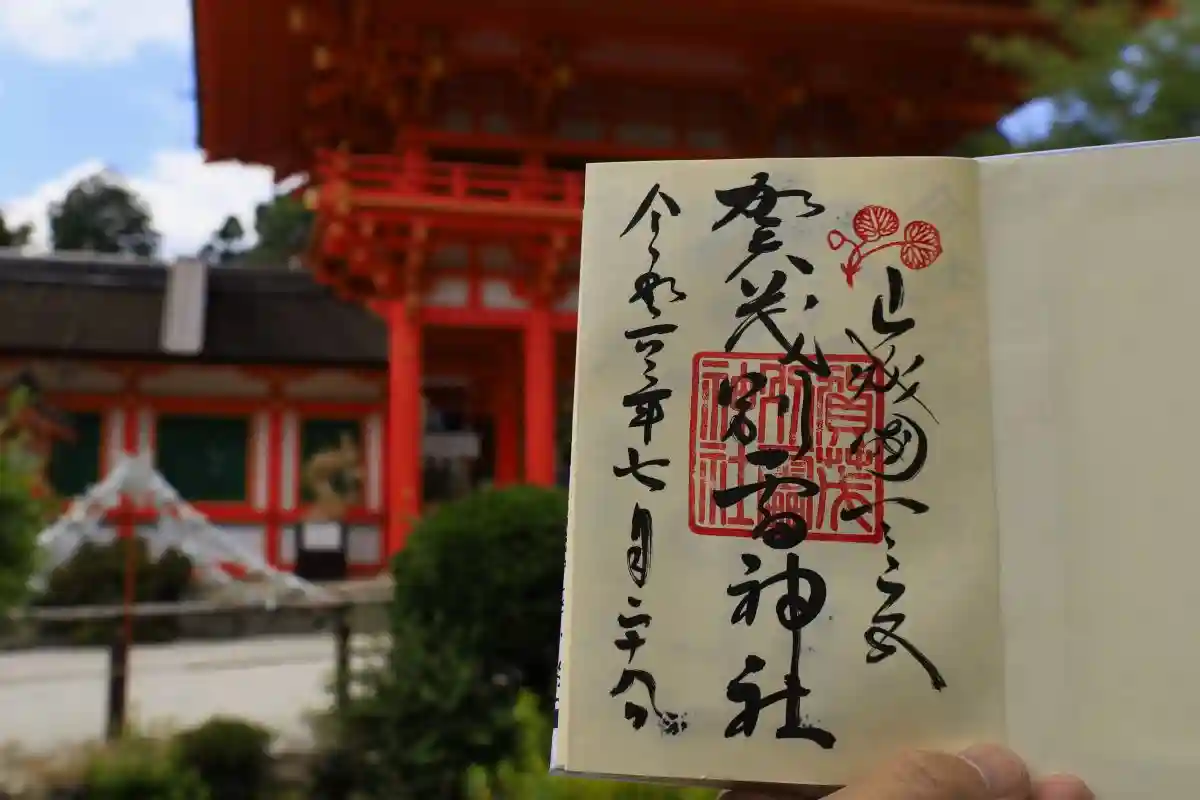 山城國一之宮
賀茂別雷神社
令和三年七月二十九日
賀茂
別雷
神社